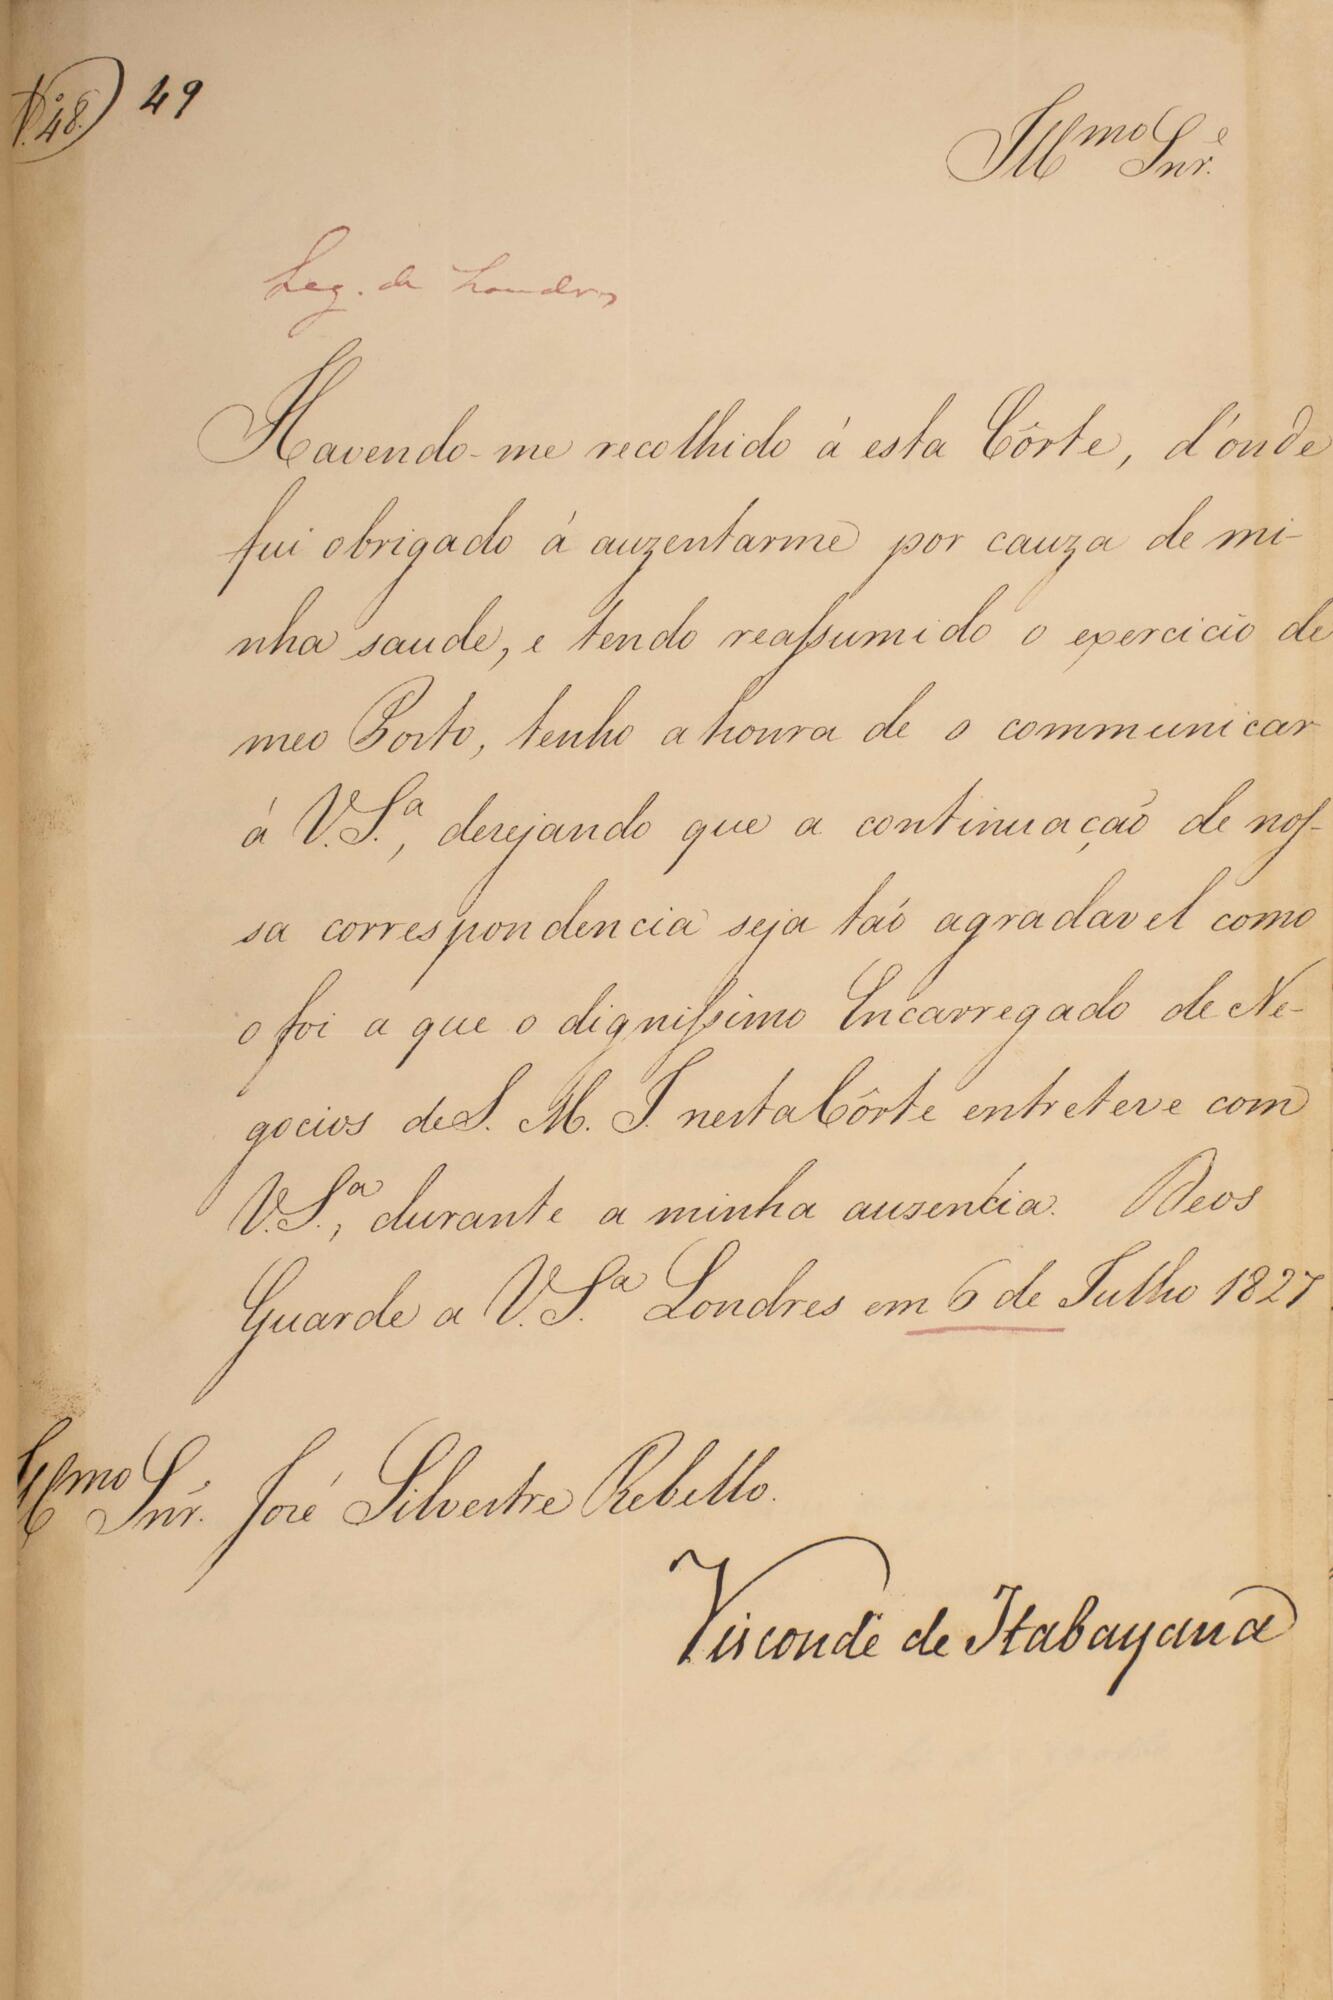 N.º 48.) 49
Ill.mo Snr.e
Leg. de Londres
Havendo-me recolhido á esta Côrte, d'onde
fui obrigado á auzentarme por cauza de mi-
nha saude, e tendo reassumido o exercicio de
meo Posto, tenho a honra de o communicar
á V.S.a, desejando que a continuação de nos-
sa correspondencia seja taó agradavel como
o foi a que o dignissimo Encarregado de Ne-
gocios de S. M. I. nesta Côrte entreteve com
V.S.a, durante a minha ausencia. Deos
Guarde a V.S.a Londres em 6 de Julho 1827
Ill.mo Snr. José Silvestre Rebello.
Visconde de Itabayana